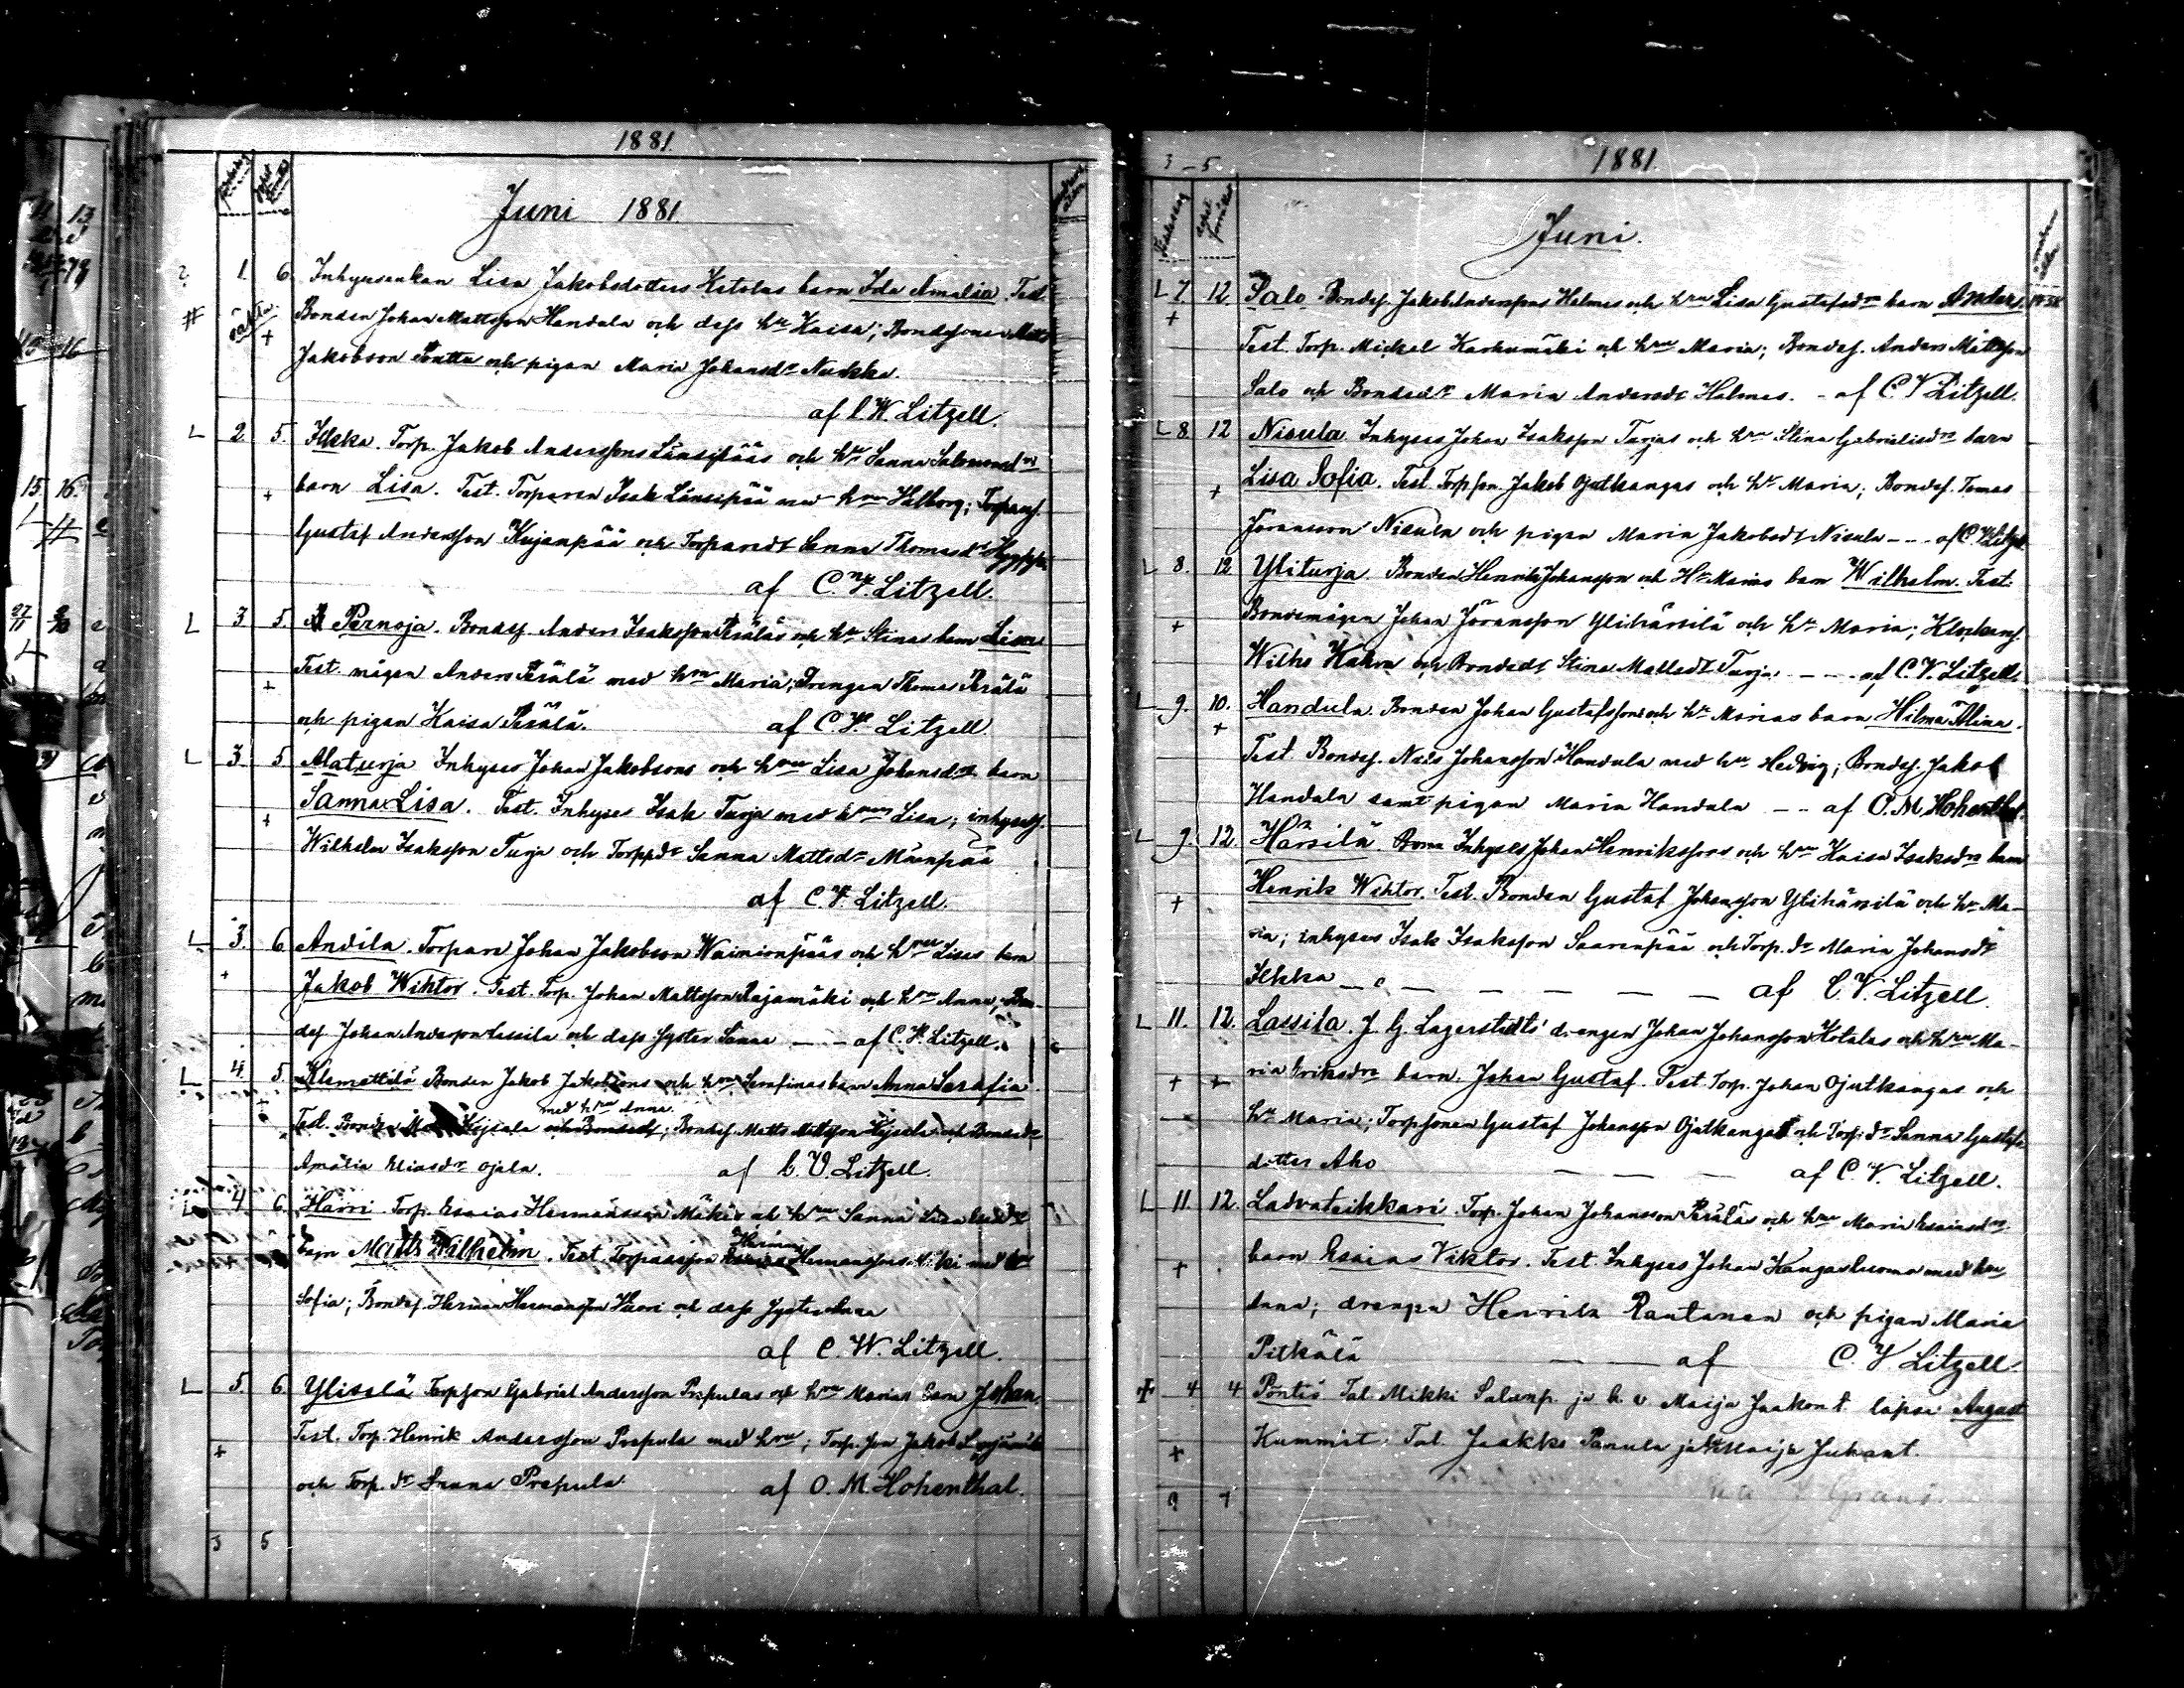 1881.
Juni 1881
1. 6. Inhysenkan Lisa Jakobsdotters Ketolas barn Ida Amalia. Test.
oäkta Bonden Johan Mattsson Handula och dess hu Kaisa; Bondsonen Matts
+ Jakobson Pouttu och pigan Maria Johansdr
af C. W. Litzell.
L 2 5. Ilkka. Torp. Jakob Anderssons Länsipääs och hu Sanna Salomonsd
+ barn Lisa. Test. Torparen Isak Länsipää med hru; Torpars.
Gustaf Andersson Kujanpää och Torparedt Sanna Thomasdr
af C. V. Litzell.
L 3 5. Pernaja. Bondes. Anders Isaksson Peräläs och hu Stinas barn Lisa
+ Test. mågen Anders Perälä med hru Maria; Drengen Thomas Perälä
och pigan Kaisa Perälä. af C. V. Litzell
L 3. 5 Alaturja Inhyses Johan Jakobsons och hru Lisa Johansdrs barn
+ Sanna Lisa. Test. Inhyses Isak Turja med hru Lisa; inhyses.
Wilhelm Isaksson Turja och Torpdr Sanna Mattsdr Mäenpää
af C. V. Litzell
L 3. 6 Andila. Torpare Johan Jakobson Wainionpääs och hru Lisas barn
+ Jakob Wihtor. Test. Torp. Johan Mattsson Rajamäki och hru Anna; Bon-
des Johan Andersson Lassila och dess syster Sanna — — af C. V. Litzell.
L 4. 5. Klemettilä Bonden Jakob Jakobsons och hru Serafinas barn Anna Serafia.
med hru Anna.
Test. Bonden Hissala; Bondes. Matts Mattsson och Bondedr
Amalia Eliasdr Ojala. af C. V. Litzell.
4. 6. Harri Torp. Esaias Hermansson Mäkis och hru Sanna Lisa
Herman
barn Matts Wilhelm. Test. Torparesson Hermansson Mäki med hru
Sofia; Bondes. Herman Hermansson Harri och dess syster
af C. W. Litzell.
L 5. 6 Ylisalä Torpson Gabriel Andersson Prepulas och hru Marias barn Johan.
+ Test. Torp. Henrik Andersson Prepula med hru; Torp. son Jakob
och Torp. dr Sanna Prepula af O. M. Hohenthal.
3 5
3 – 5
1881.
Juni.
L 7 12. Salo. Bondes. Jakob Anderssons Holmes och hru Lisa Gustafsdrs barn Anders.
+ Test. Torp. Mickel Karhumäki och hru Maria; Bondes. Anders Mattsson
Salo och Bondedr Maria Andersdr Holmes. – af C V Litzell.
L 8. 12 Nisula Inhyses Johan Isaksson Turjas och hru Stina Gabrielsdrs barn
+ Lisa Sofia. Test. Torpson. Jakob Ojutkangas och hr Maria; Bondes. Tomas
Göransson Nisula och pigan Maria Jakobsdt Nisula – – – af C. V. Litzell
L 8. 12 Yliturja. Bonden Henrik Johansson och Hr Marias barn Wilhelm. Test.
+ Bondemågen Johan Göransson Ylihärsilä och hr Maria;
Wilho och Bondedt Stina Mattsdt Turja. – – – af C. V. Litzell
L 9. 10. Handula. Bonden Johan Gustafssons och hr Marias barn Hilma Alina.
+ Test. Bondes. Nils Johansson Handula med hr Hedvig; Bondes. Jakob
Handula samt pigan Maria Handula – – af O. M. Hohenthal.
L 9. 12. Härsilä Inhyses Johan Henrikssons och hru Kaisa Isaksdrs barn
+ Henrik Wihtor. Test. Bonden Gustaf Johansson Ylihärsilä och hr Ma-
ria; inhyses Isak Isaksson Saarenpää och Torp. dr Maria Johansdt
Ilkka — — — — — — af C. V. Litzell.
L 11. 12. Lassila. J. G. Lagerstedts' drengen Johan Johansson Kotalas och hru Ma-
+ + ria Eriksdrs barn. Johan Gustaf. Test. Torp. Johan Ojutkangas och
hr Maria; Torpsonen Gustaf Johansson Ojutkangas och Torp. dr Sanna Gustafs
dotter Aho — — — af C. V. Litzell.
L 11. 12. Ladvateikkari. Torp. Johan Johansson Peräläs och hru Maria Esaiasdrs
+ barn Esaias Viktor. Test. Inhyses Johan Kangasluoma med hru
Anna; drengen Henrik Rantanen och pigan Maria
Pitkälä — — af C. V Litzell.
4 4 Pöntiö Tal. Mikki Salunp. ja h. v. Maija Jaakon t. lapsi August
+ Kummit: Tal. Jaakko Panula ja Maija Juhant.